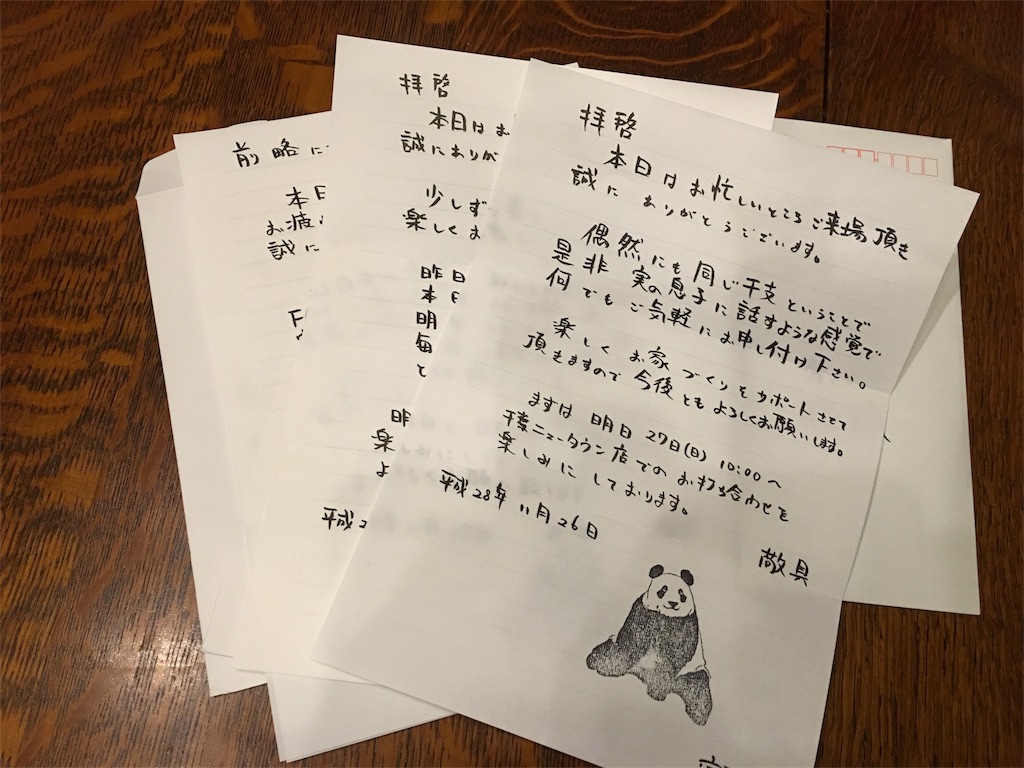 拝啓
本日はお忙しいところご来場頂き
誠にありがとうございます。
偶然にも同じ干支ということで
是非実の息子に話すような感覚で
何でもご気軽にお申し付け下さい。
楽しくお家づくりをサポートさせて
頂きますので今後ともよろしくお願いします。
まずは明日27日(日)10:00〜
千葉ニュータウン店でのお打ち合わせを
楽しみにしております。
平成28年11月26日
敬具
拝啓
本日はお
誠にありが
少しず
楽しくお
昨日
本日
明
毎
と
明
楽
よ
平成2
前略に
本日
お疲
誠に